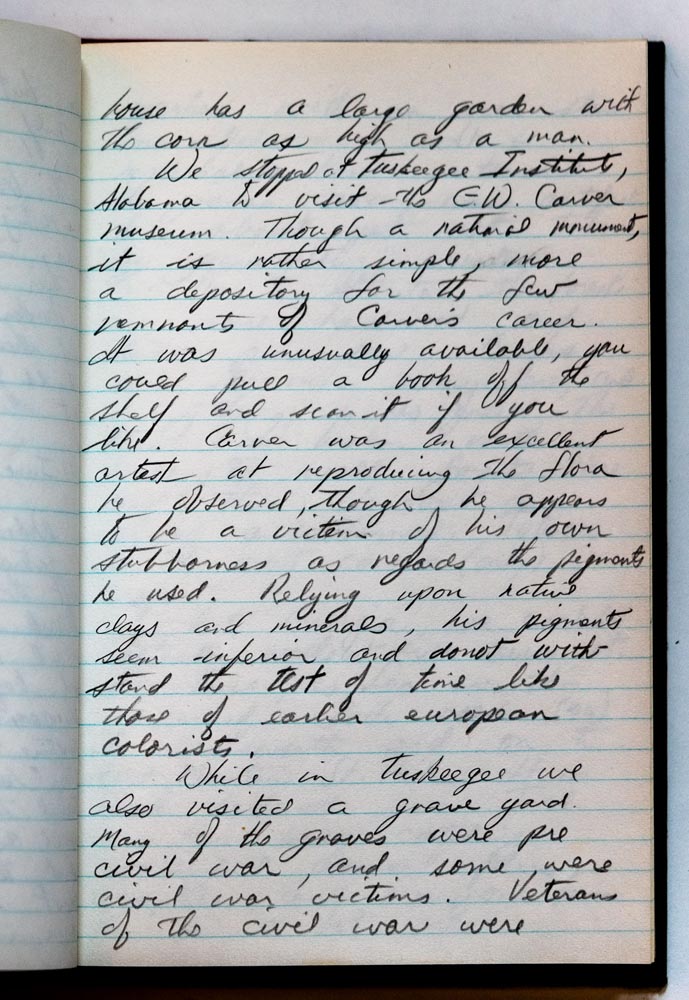 house has a large garden with
the corn as high as a man.
We stopped at Tuskeegee Institute,
Alabama to visit the G.W. Carver
museum. Though a national monument,
it is rather simple, more
a depository for the few
remnants of Carver's career.
It was unusually available, you
could pull a book off the
shelf and scan it if you
like. Carver was an excellent
artest at reproducing the flora
he observed, though he appears
to be a victim of his own
stubborness as regards the pigments
he used. Relying upon native
clays and minerals, his pigments
seem inferior and donot with
stand the test of time like
those of earlier european
colorists.
While in Tuskeegee we
also visited a grave yard.
Many of the graves were pre
civil war, and some were
civil war victims. Veterans
of the civil war were